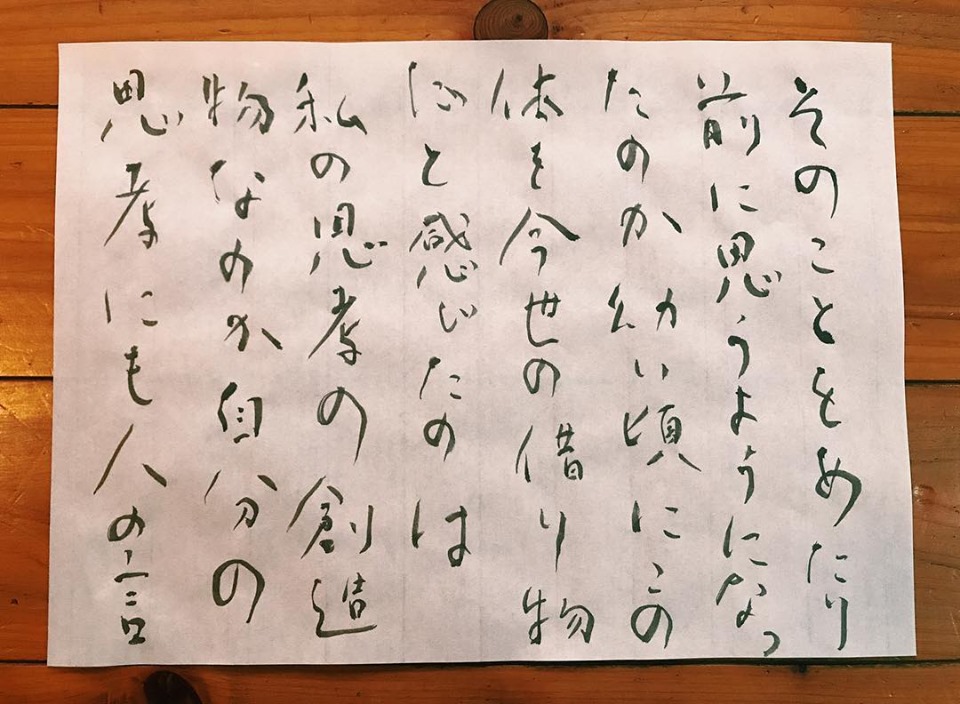 そのことをあたり
前に思うようになっ
たのか幼い頃にこの
体を今世の借り物
だと感じたのは
私の思考の創造
物なのか自分の
思考にも人の言